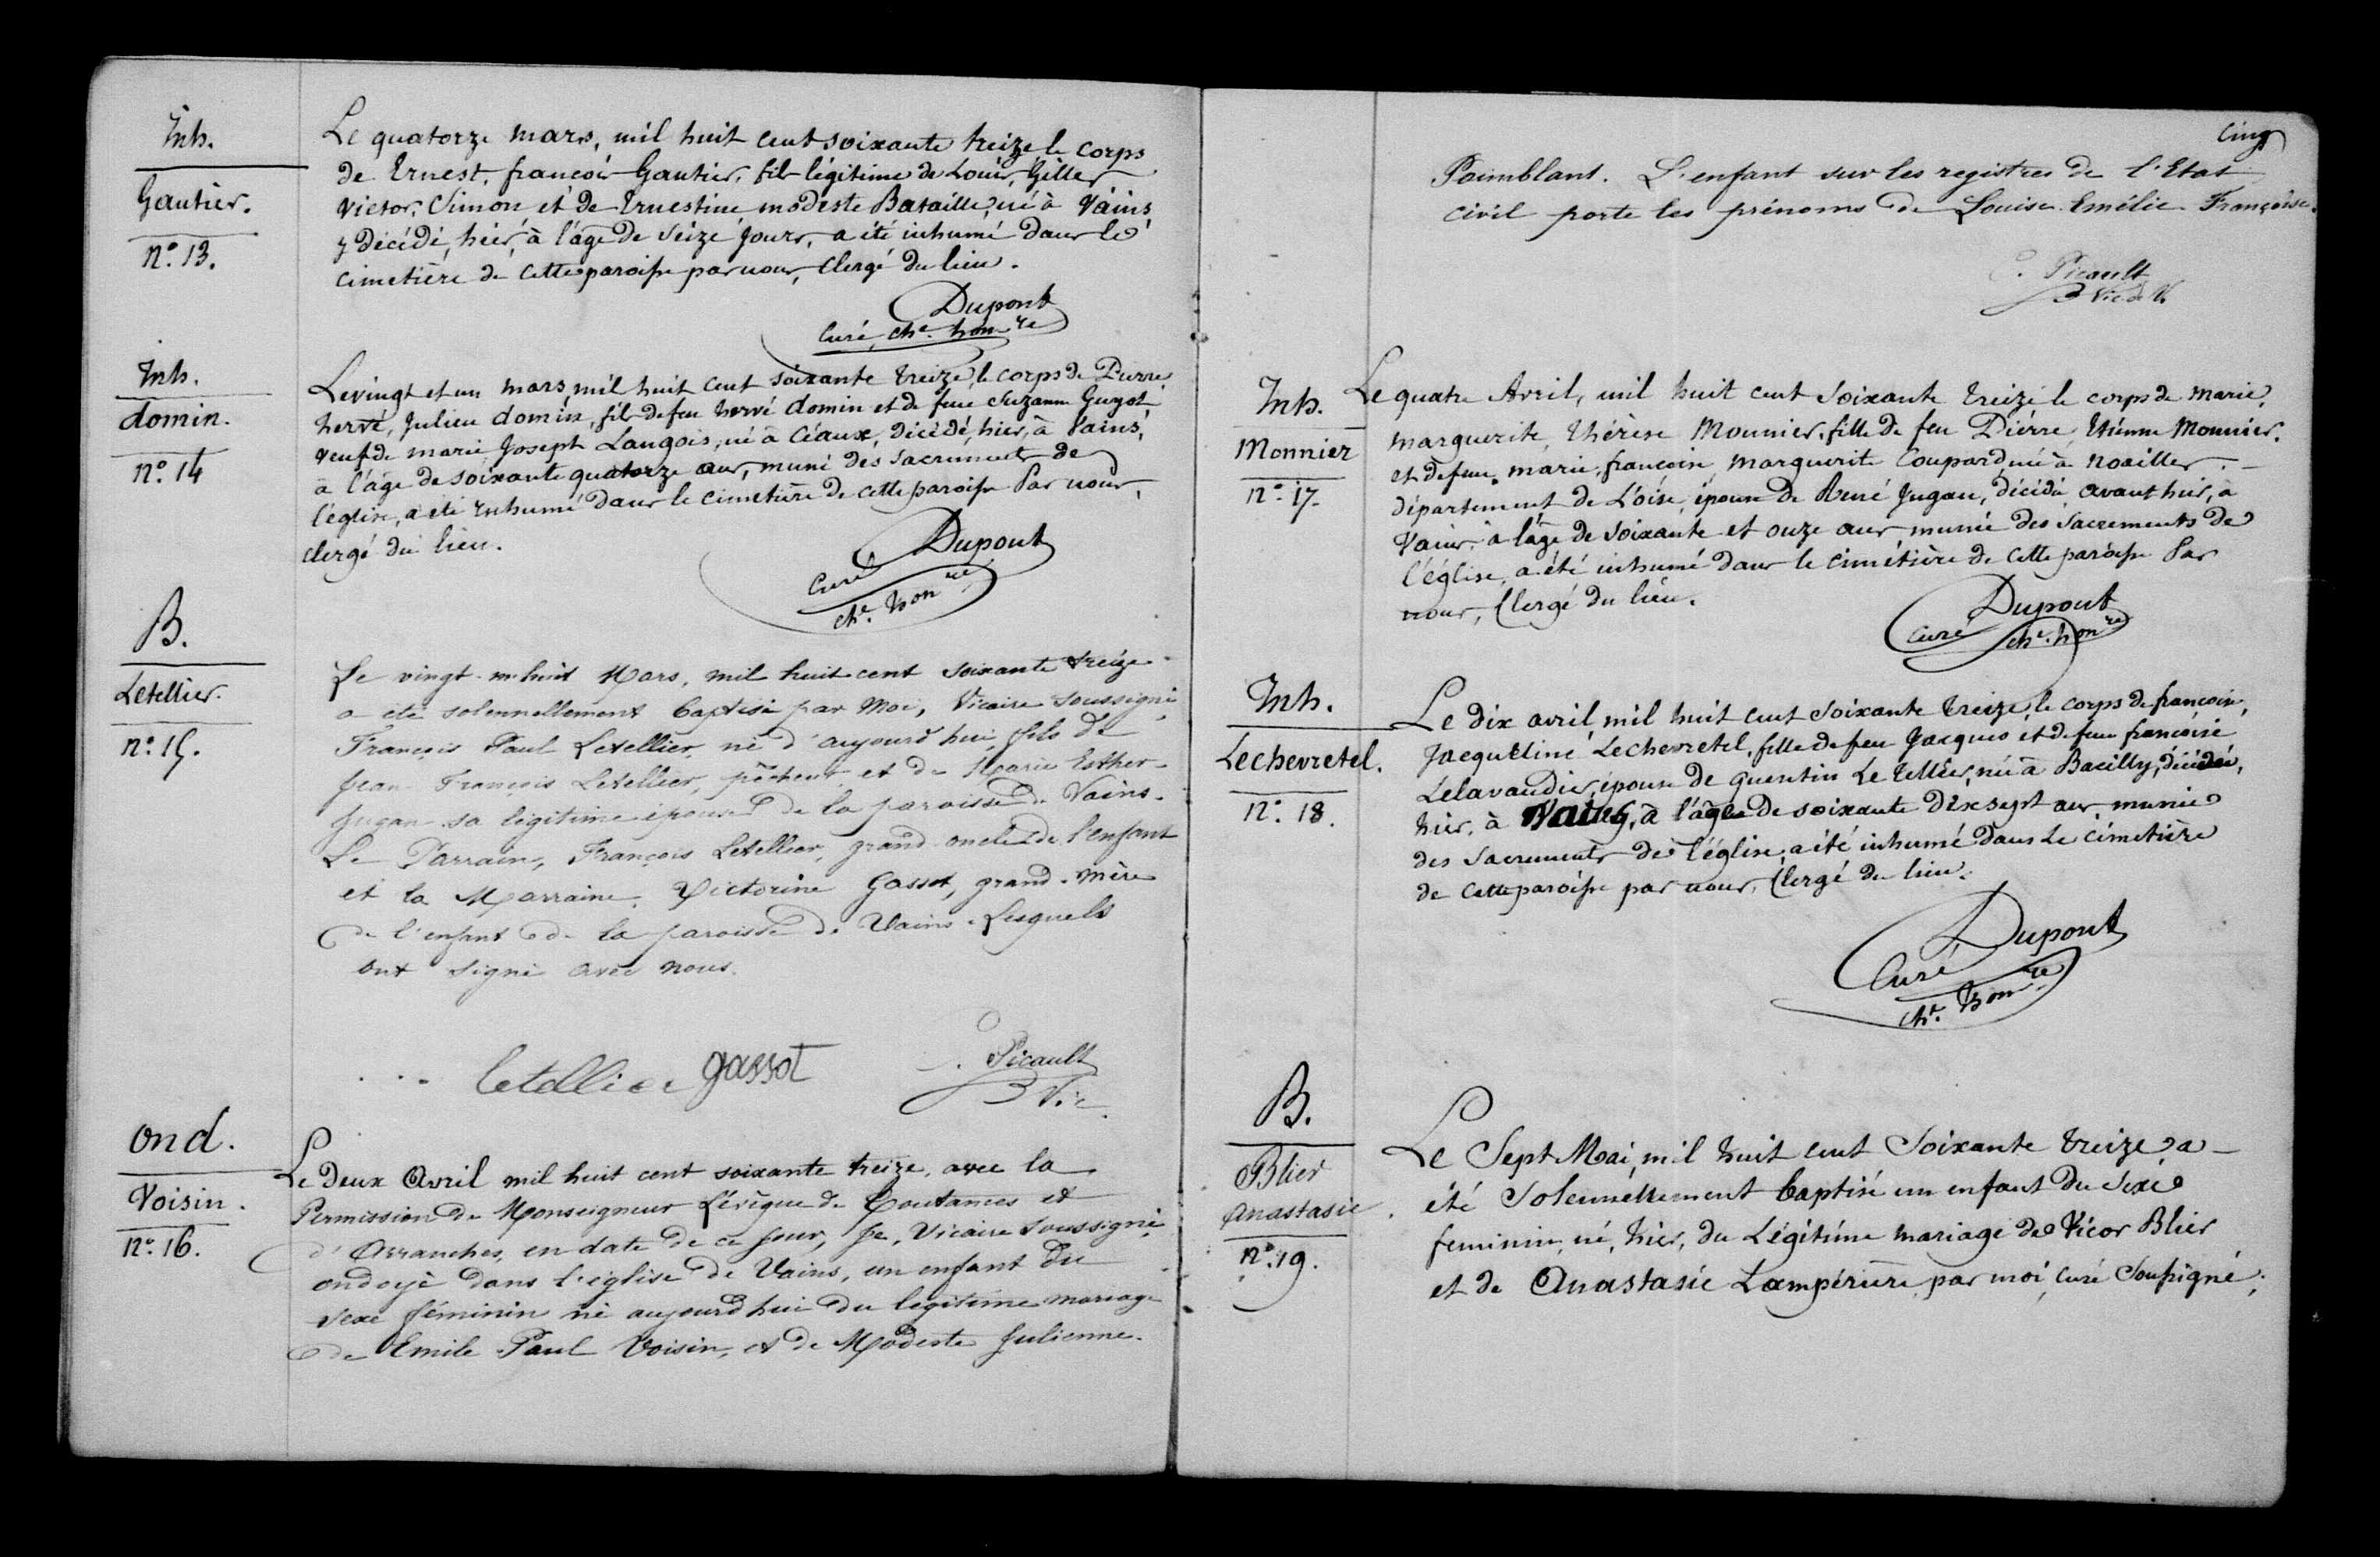 Inh.
Gautier.
n.° 13.
Le quatorze mars, mil huit cent soixante treize le corps
de Ernest, françois Gautier, fils légitime de Louis, Gilles
victor, Simon et de Ernestine modeste Bataille, né à Vains
y décédé, hier, à l'âge de seize jours, a été inhumé dans le
cimetière de cette paroisse par nous, Clergé du lieu.
Dupont
Curé, che. honre
Inh.
domin.
n.° 14
Le vingt et un mars mil huit cent soixante treize, le corps de Pierre
hervé, Julien domin, fils de feu hervé domin et de feue Suzanne Guyot,
veuf de marie Joseph Langois, né à Céaux, décédé, hier, à Vains,
à l'âge de soixante quatorze ans, muni des sacrements de
l'église, a été inhumé dans le cimetière de cette paroisse Par nous,
clergé du lieu.
Dupont
Curé
che. honre
B.
Letellier.
n.° 15.
Le vingt-huit Mars, mil huit cent soixante treize
a été solennellement baptisé par moi, Vicaire soussigné,
François Paul Letellier né d'aujourd'hui, fils de
Jean François Letellier, pêcheur et de Marie Esther
Jugan sa légitime épouse de la paroisse de Vains.
Le Parrain, François Letellier, grand oncle de l'enfant
et la Marraine, Victorine Gassot, grand-mère
de l'enfant de la paroisse de Vains. Lesquels
ont signé avec nous.
letellier gassot Picault
Vic.
ond.
Voisin.
n.° 16.
Le deux Avril mil huit cent soixante treize, avec la
Permission de Monseigneur L'évêque de Coutances et
d'Avranches, en date de ce jour, Je, Vicaire soussigné,
ondoyé dans l'église de Vains, un enfant du
sexe féminin né aujourd'hui du légitime mariage
de Emile Paul Voisin, et de Modeste Julienne
cinq
Poimblant. L'enfant sur les registres de l'Etat
civil porte les prénoms de Louise Emélie Françoise.
Picault
Vic de V.
Inh.
Monnier
n.° 17.
Le quatre Avril, mil huit cent soixante treize le corps de marie,
marguerite, thérèse Monnier, fille de feu Pierre, Etienne Monnier,
et de feue marie, françoise, marguerite Coupard née à noailles
département de L'oise, épouse de René Jugan, décédée, avant hier, à
Vains, à l'âge de soixante et onze ans, munie des sacrements de
l'église, a été inhumé dans le cimetière de cette paroisse Par
nous, Clergé du lieu.
Dupont
Curé che. honre
Inh.
Lechevretel.
n.° 18.
Le dix avril, mil huit cent soixante treize, le corps de françoise,
Jacqueline, Lechevretel, fille de feu Jacques et de feue françoise
Lelavandier, épouse de quentin Le tellier, née à Bacilly, décédée,
hier, à Vains, à l'âge de soixante dix sept ans, munie
des sacrements de l'église, a été inhumé dans le cimetière
de cette paroisse par nous, Clergé du lieu.
Dupont
Curé,
che. honre
B.
Blier
Anastasie.
n.° 19.
Le Sept Mai, mil huit cent Soixante treize, a
été Solennellement baptisé un enfant du sexe
feminin, né, hier, du Légitime mariage de Vicor Blier
et de Anastasie Lampérière, par moi, curé Soussigné,